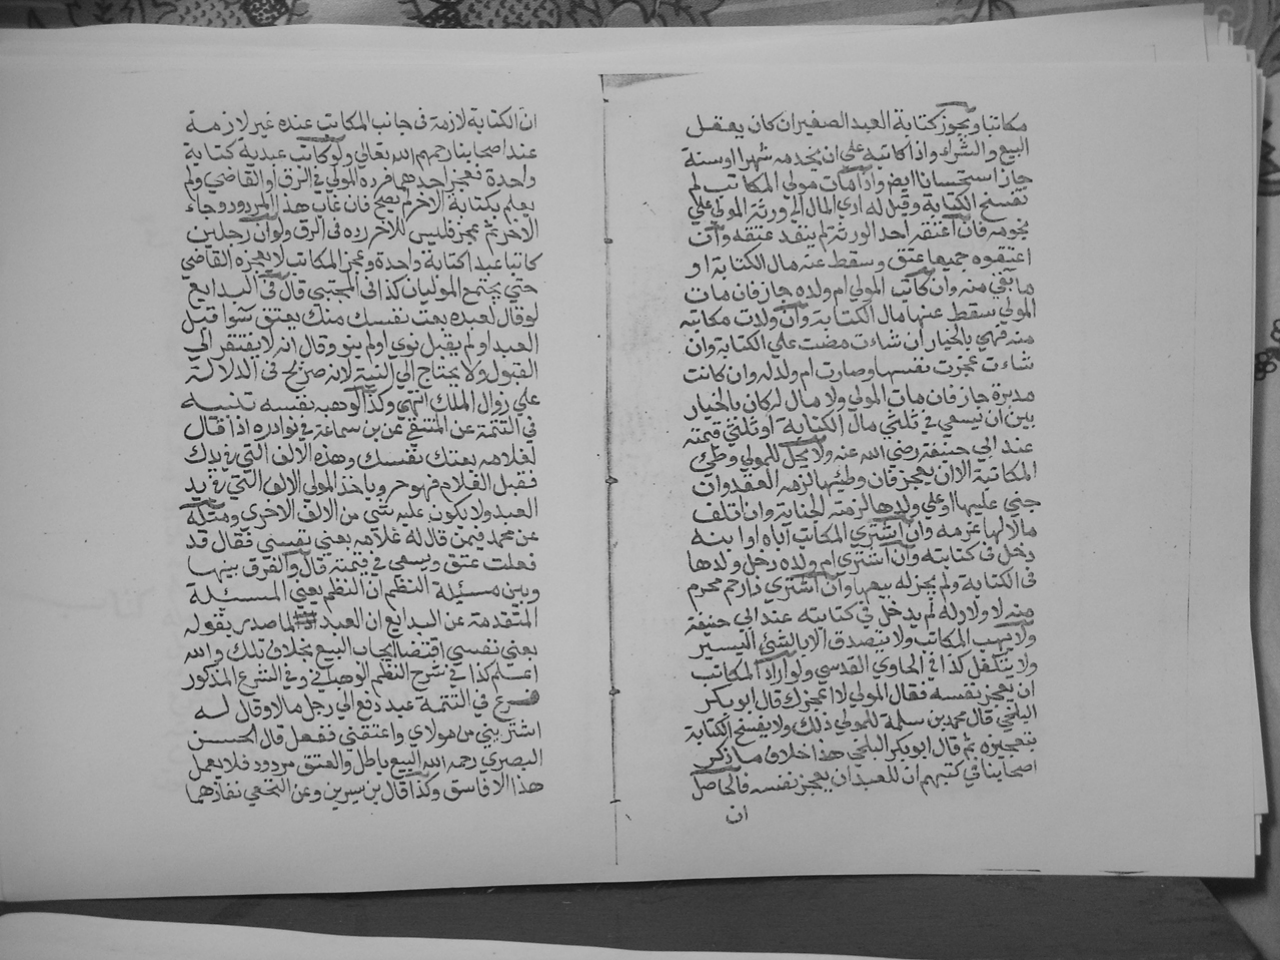 مكاتبا ويجوز كتابة العبد الصغير ان كان يعقل
البيع والشراء واذا كاتبه علي ان يخدمه شهرا او سنة
جاز استحسانا ايض واذا مات مولى المكاتب لم
تفسخ الكتابة وقيل له ادي المال الي ورثة المولي علي
نجومه فان اعتقه احد الورثة لم ينفد عتقه وان
اعتقوه جميعا عتق وسقط عنه مال الكتابة او
ما بقي منه وان كاتب المولي ام ولده جاز فان مات
المولي سقط عنها مال الكتابة وان ولدت مكاتبه
منه فهي بالخيار ان شاءت مضت علي الكتابة وان
شاءت عجزت نفسها وصارت ام ولد له وان كانت
مدبرة جاز فان مات المولي ولا مال له كان بالخيار
بين ان يسعي في ثلثي مال الكتابة او ثلثي قيمته
عند ابي حنيفة رضي الله عنه ولا يحل للمولي وطي
المكاتبة الا ان يعجز فان وطئها لزمه العقد وان
جني عليها او علي ولدها لزمته الجناية وان اتلف
مالا لها غرمه وان اشتري المكاتب اباه او ابنه
دخل في كتابته وان اشتري ام ولده دخل ولدها
في الكتابة ولم يجز له بيعها وان اشتري ذا رحم محرم
منه لا ولاد له لم يدخل في كتابته عند ابي حنيفة
ولا يهب المكاتب ولا يتصدق الا بالشي اليسير
ولا يتكفل كذا في الحاوي القدسي ولو اراد المكاتب
ان يعجز نفسه فقال المولي لا اعجزك قال ابو بكر
البلخي قال محمد بن سلمة للمولي ذلك ولا يفسخ الكتابة
بتعجيزه ثم قال ابو بكر البلخي هذا خلاف ما ذكر
اصحابنا في كتبهم ان للعبد ان يعجز نفسه فالحاصل
ان
ان الكتابة لازمة في جانب المكاتب عنده غير لازمة
عند اصحابنا رحمهم الله تعالي ولو كاتب عبديه كتابة
واحدة فعجز احدهما فرده المولي في الرق او القاضي ولم
يعلم بكتابة الاخر لم يصح فان غاب هذا المردود وجاء
الاخر ثم عجز فليس للاخر رده في الرق ولو ان رجلين
كاتبا عبدا كتابة واحدة وعجز المكاتب لا يعجزه القاضي
حتي يجتمع الموليان كذا في المجتبي قال في البدايع
لو قال لعبده بعت نفسك منك يعتق سوا قبل
العبد او لم يقبل نوي او لم ينو وقال انه لا يفتقر الي
القبول ولا يحتاج الي النية لانه صريح في الدلالة
علي زوال الملك انتهي وكذا لو وهبه نفسه تنبيه
في التتمة عن المنتقي عن بن سماعة في نوادره اذا قال
لغلامه بعتك نفسك وهذه الالف التي في يدك
فقبل الغلام فهو حر وياخذ المولي الالف التي في يد
العبد ولا يكون عليه شئ من الالف الاخري ومثله
عن محمد فيمن قال له غلامه بعني نفسي فقال قد
فعلت عتق ويسعي في قيمته قال والفرق بينها
وبين مسئلة النظم ان النظم يعني المسئلة
المتقدمة عن البدايع ان العبد لما صدر بقوله
بعني نفسي اقتضا ايجاب البيع بخلاف تلك والله
اعلم كذا في شرح النظم الوهباني وفي الشرع المذكور
فرع في التتمة عبد دفع الي رجل مالا وقال له
اشتريني من مولاي واعتقني ففعل قال الحسن
البصري رحمه الله البيع باطل والعتق مردود فلا يعمل
هذا الا فاسق وكذا قال بن سيرين وعن النخعي نفاذهما